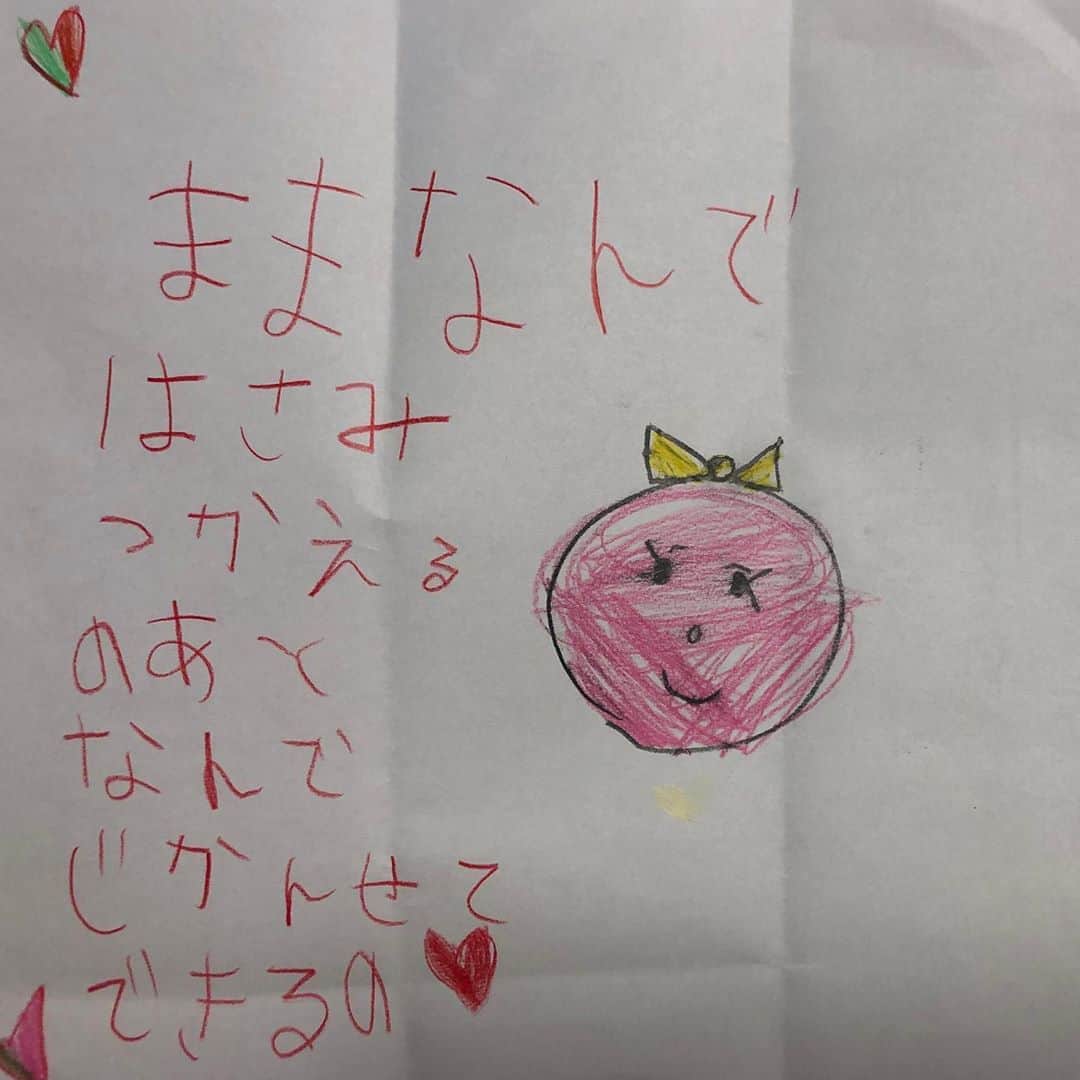 ままなんで
はさみ
つかえる
のあと
なんで
じかんせて
できるの